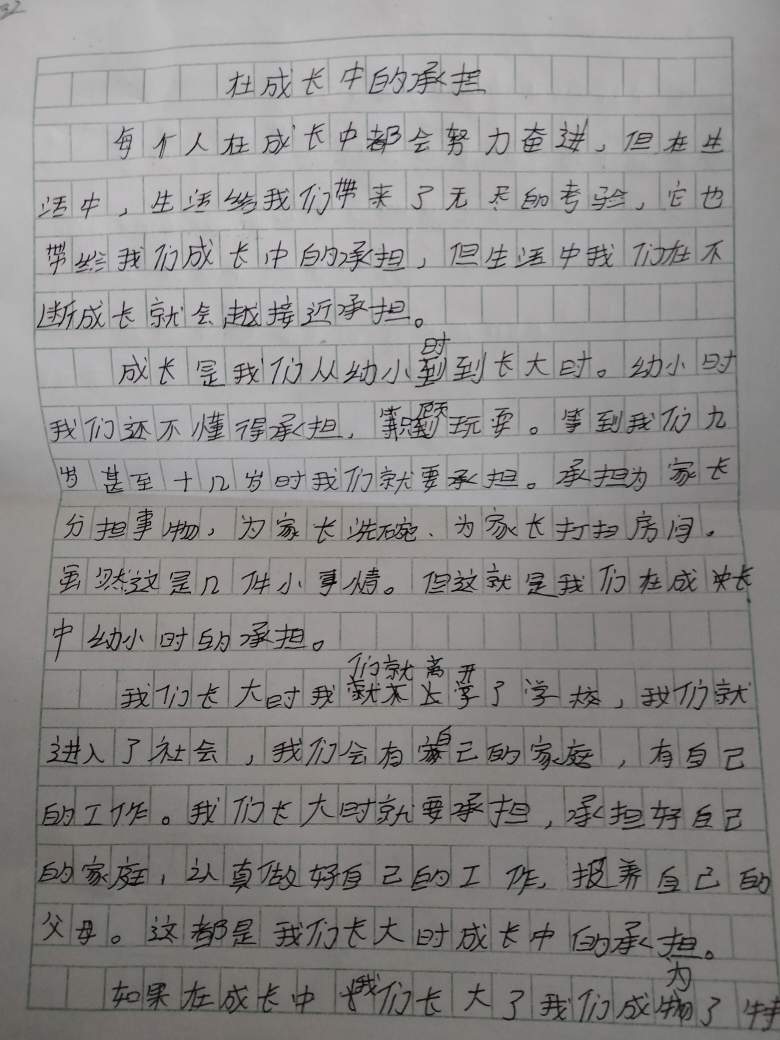 37
在成长中的承担
每个人在成长中都会努力奋进，但在生
活中，生活给我们带来了无尽的考验，它也
带给我们成长中的承担，但生活中我们在不
断成长就会越接近承担。
成长是我们从幼小时到长大时。幼小时
我们还不懂得承担，只天玩耍。等到我们九
岁甚至十几岁时我们就要承担。承担为家长
分担事物，为家长洗碗、为家长打扫房间。
虽然这是几件小事情。但这就是我们在成长
中幼小时的承担。
我们长大时我们就离开了学校，我们就
进入了社会，我们会有自己的家庭，有自己
的工作。我们长大时就要承担，承担好自己
的家庭，认真做好自己的工作，报养自己的
父母。这都是我们长大时成长中的承担。
如果在成长中我们长大了我们成为了特